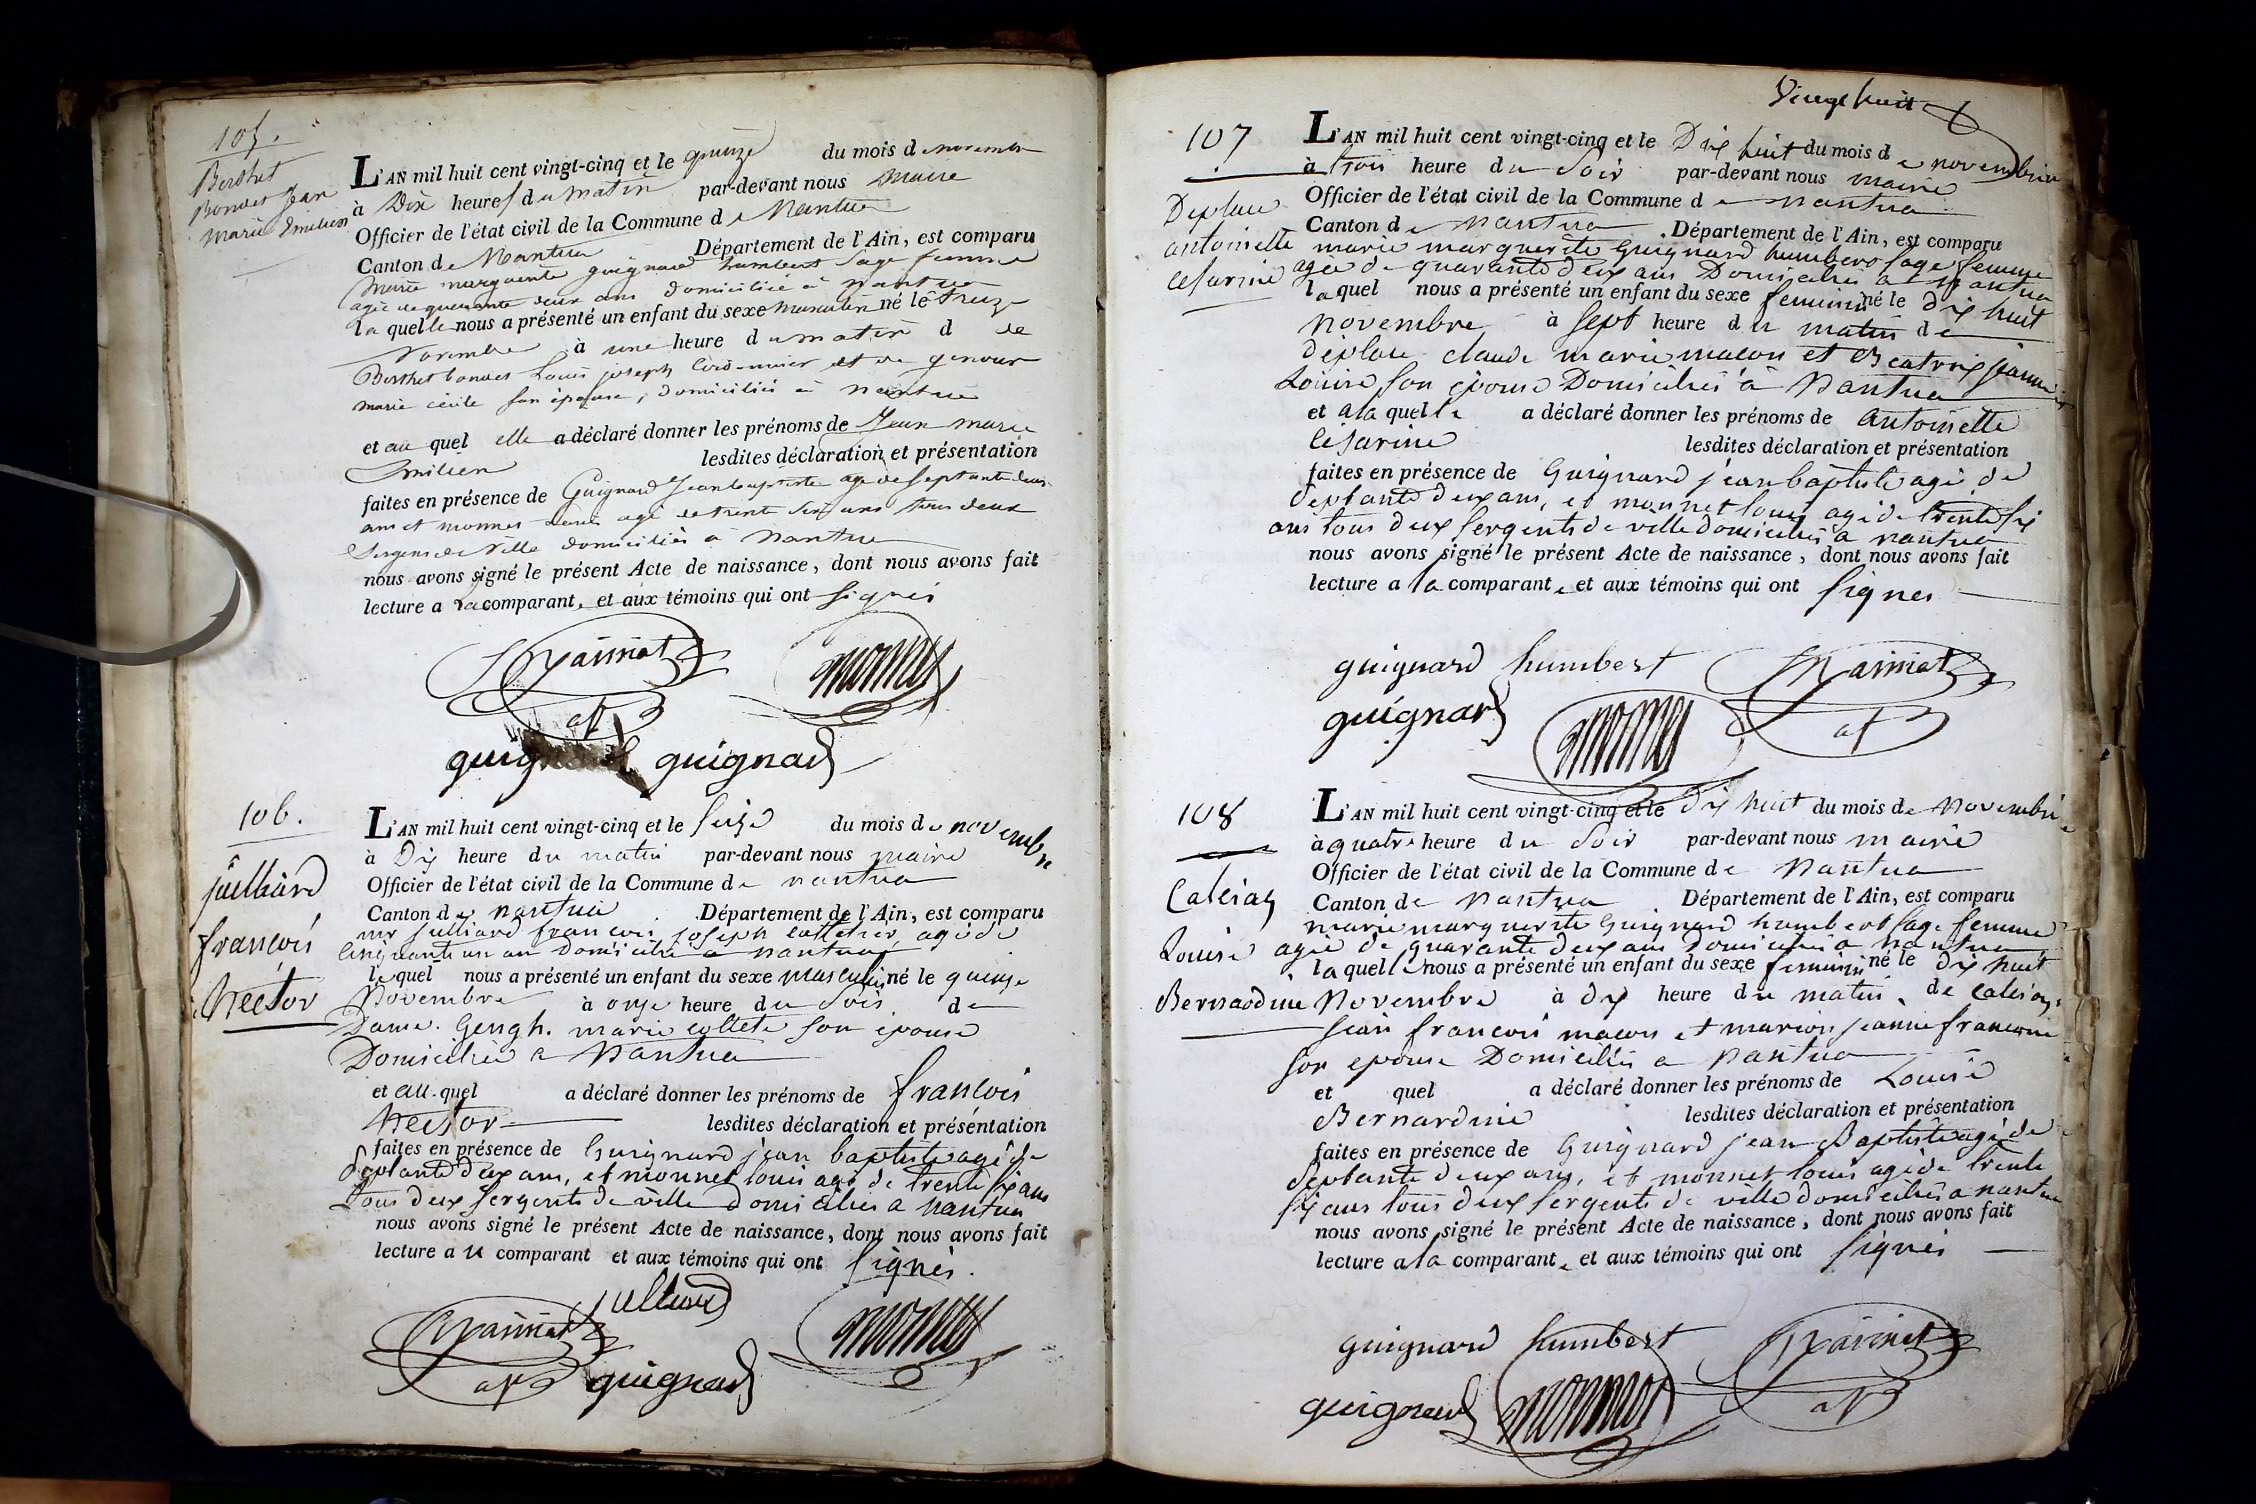 105.
Berthet
Bonnet Jean
Marie Emilien
L'AN mil huit cent vingt-cinq et le quinze du mois de novembre
à Dix heures du matin par-devant nous Maire
Officier de l'état civil de la Commune de Nantua
Canton de Nantua Département de l'Ain, est comparu
Marie marguerite guignard humbert Sage femme
agée de quarante deux ans domiciliée à nantua
laquelle nous a présenté un enfant du sexe masculin né le treize
Novembre à une heure du matin d de
Berthet bonnet Louis joseph Cordonnier et de
marie cécile son épouse, domiciliés à nantua
et au quel elle a déclaré donner les prénoms de Jean marie
Emilien lesdites déclaration et présentation
faites en présence de Guignard Jean baptiste agé de septante deux
ans et monnet Louis agé de trente six ans tous deux
Sergens de Ville domiciliés à Nantua
nous avons signé le présent Acte de naissance, dont nous avons fait
lecture a la comparante et aux témoins qui ont signés
monnet
guignard guignard
106.
julliard
françois
hector
L'AN mil huit cent vingt-cinq et le seize du mois de novembre
à Dix heure du matin par-devant nous maire
Officier de l'état civil de la Commune de nantua
Canton de nantua Département de l'Ain, est comparu
mr julliard françois joseph agé de
cinquante un an Domicilié a nantua
lequel nous a présenté un enfant du sexe masculin né le quinze
Novembre à onze heure du soir de
Dame marie collete son épouse
Domiciliée a Nantua
et au quel a déclaré donner les prénoms de françois
hector lesdites déclaration et présentation
faites en présence de Guignard jean baptiste agé de
septante deux ans, et monnet louis agé de trente six ans
tous deux sergents de ville domiciliés a nantua
nous avons signé le présent Acte de naissance, dont nous avons fait
lecture a u comparant et aux témoins qui ont signés.
julliard
monnet
guignard
Vingt huit
107
Deplace
antoinette
Césarine
L'AN mil huit cent vingt-cinq et le Dix huit du mois de novembre
à trois heure du soir par-devant nous maire
Officier de l'état civil de la Commune de nantua
Canton de nantua Département de l'Ain, est comparu
marie marguerite Guignard humbert sage femme
agée de quarante deux ans Domiciliée a nantua
laquel nous a présenté un enfant du sexe feminin né le dix huit
novembre à sept heure du matin de
déplace claude marie macon et Beatrix jeanne
Louise son épouse Domiciliés à Nantua
et a la quelle a déclaré donner les prénoms de antoinette
césarine lesdites déclaration et présentation
faites en présence de Guignard jean baptiste agé de
septante deux ans, et monnet louis agé de trente six
ans tous deux sergents de ville domiciliés a nantua
nous avons signé le présent Acte de naissance, dont nous avons fait
lecture a la comparante et aux témoins qui ont signes
guignard humbert
guignard
monnet
108
Louise
Bernardine
L'AN mil huit cent vingt-cinq et le dix huit du mois de Novembre
à quatre heure du soir par-devant nous maire
Officier de l'état civil de la Commune de Nantua
Canton de Nantua Département de l'Ain, est comparu
marie marguerite Guignard humbert sage femme
agée de quarante deux ans domiciliée a nantua
laquelle nous a présenté un enfant du sexe feminin né le dix huit
Novembre à dix heure du matin de
jean françois macon et marion jeanne françoise
son epouse Domiciliés a Nantua
et quel a déclaré donner les prénoms de Louise
Bernardine lesdites déclaration et présentation
faites en présence de Guignard jean Baptiste agé de
septante deux ans, et monnet louis agé de trente
six ans tous deux sergents de ville domiciliés a nantua
nous avons signé le présent Acte de naissance, dont nous avons fait
lecture a la comparante et aux témoins qui ont signés
guignard humbert
guignard monnet